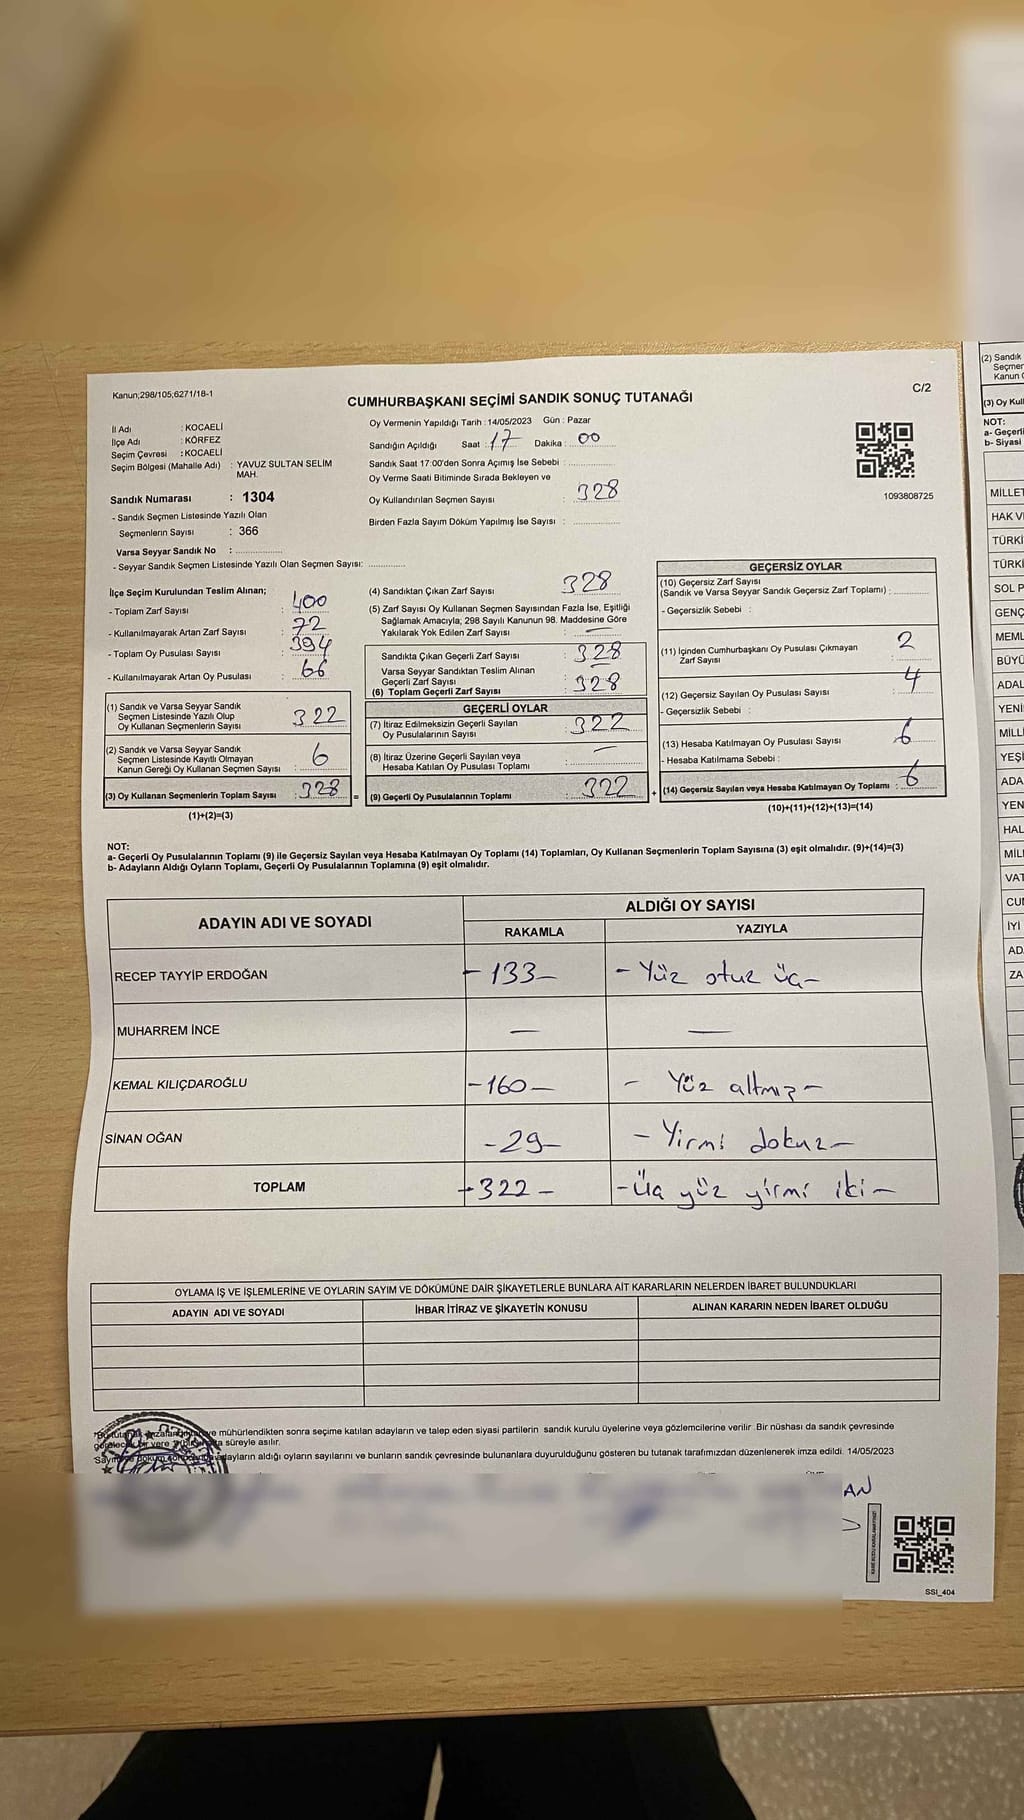 Kanun;298/105;6271/18-1
C/2
CUMHURBAŞKANI SEÇİMİ SANDIK SONUÇ TUTANAĞI
İl Adı : KOCAELİ
İlçe Adı : KÖRFEZ
Seçim Çevresi : KOCAELİ
Seçim Bölgesi (Mahalle Adı) : YAVUZ SULTAN SELİM
MAH.
Sandık Numarası : 1304
- Sandık Seçmen Listesinde Yazılı Olan
Seçmenlerin Sayısı : 366
Varsa Seyyar Sandık No :
- Seyyar Sandık Seçmen Listesinde Yazılı Olan Seçmen Sayısı:
Oy Vermenin Yapıldığı Tarih : 14/05/2023 Gün : Pazar
Sandığın Açıldığı Saat : 17 Dakika : 00
Sandık Saat 17:00'den Sonra Açımış İse Sebebi :
Oy Verme Saati Bitiminde Sırada Bekleyen ve
Oy Kullandırılan Seçmen Sayısı : 328
Birden Fazla Sayım Döküm Yapılmış İse Sayısı :
1093808725
İlçe Seçim Kurulundan Teslim Alınan;
- Toplam Zarf Sayısı : 400
- Kullanılmayarak Artan Zarf Sayısı : 72
- Toplam Oy Pusulası Sayısı : 394
- Kullanılmayarak Artan Oy Pusulası : 66
(1) Sandık ve Varsa Seyyar Sandık
Seçmen Listesinde Yazılı Olup
Oy Kullanan Seçmenlerin Sayısı : 322
(2) Sandık ve Varsa Seyyar Sandık
Seçmen Listesinde Kayıtlı Olmayan
Kanun Gereği Oy Kullanan Seçmen Sayısı : 6
(3) Oy Kullanan Seçmenlerin Toplam Sayısı : 328
(1)+(2)=(3)
(4) Sandıktan Çıkan Zarf Sayısı : 328
(5) Zarf Sayısı Oy Kullanan Seçmen Sayısından Fazla İse, Eşitliği
Sağlamak Amacıyla; 298 Sayılı Kanunun 98. Maddesine Göre
Yakılarak Yok Edilen Zarf Sayısı : —
Sandıkta Çıkan Geçerli Zarf Sayısı : 328
Varsa Seyyar Sandıktan Teslim Alınan
Geçerli Zarf Sayısı
(6) Toplam Geçerli Zarf Sayısı : 328
GEÇERLİ OYLAR
(7) İtiraz Edilmeksizin Geçerli Sayılan
Oy Pusulalarının Sayısı : 322
(8) İtiraz Üzerine Geçerli Sayılan veya
Hesaba Katılan Oy Pusulası Toplamı : —
(9) Geçerli Oy Pusulalarının Toplamı : 322
GEÇERSİZ OYLAR
(10) Geçersiz Zarf Sayısı
(Sandık ve Varsa Seyyar Sandık Geçersiz Zarf Toplamı) :
- Geçersizlik Sebebi :
(11) İçinden Cumhurbaşkanı Oy Pusulası Çıkmayan
Zarf Sayısı : 2
(12) Geçersiz Sayılan Oy Pusulası Sayısı : 4
- Geçersizlik Sebebi :
(13) Hesaba Katılmayan Oy Pusulası Sayısı : 6
- Hesaba Katılmama Sebebi :
(14) Geçersiz Sayılan veya Hesaba Katılmayan Oy Toplamı : 6
(10)+(11)+(12)+(13)=(14)
NOT:
a- Geçerli Oy Pusulalarının Toplamı (9) ile Geçersiz Sayılan veya Hesaba Katılmayan Oy Toplamı (14) Toplamları, Oy Kullanan Seçmenlerin Toplam Sayısına (3) eşit olmalıdır. (9)+(14)=(3)
b- Adayların Aldığı Oyların Toplamı, Geçerli Oy Pusulalarının Toplamına (9) eşit olmalıdır.
ADAYIN ADI VE SOYADI
ALDIĞI OY SAYISI
RAKAMLA YAZIYLA
RECEP TAYYİP ERDOĞAN - 133 - - Yüz otuz üç -
MUHARREM İNCE — —
KEMAL KILIÇDAROĞLU - 160 - - Yüz altmış -
SİNAN OĞAN - 29 - - Yirmi dokuz -
TOPLAM - 322 - - Üç yüz yirmi iki -
OYLAMA İŞ VE İŞLEMLERİNE VE OYLARIN SAYIM VE DÖKÜMÜNE DAİR ŞİKAYETLERLE BUNLARA AİT KARARLARIN NELERDEN İBARET BULUNDUKLARI
ADAYIN ADI VE SOYADI İHBAR İTİRAZ VE ŞİKAYETİN KONUSU ALINAN KARARIN NEDEN İBARET OLDUĞU
mühürlendikten sonra seçime katılan adayların ve talep eden siyasi partilerin sandık kurulu üyelerine veya gözlemcilerine verilir. Bir nüshası da sandık çevresinde
süreyle asılır.
adayların aldığı oyların sayılarını ve bunların sandık çevresinde bulunanlara duyurulduğunu gösteren bu tutanak tarafımızdan düzenlenerek imza edildi. 14/05/2023
AN
SSI_404
(2) Sandık
Seçmen
Kanun
(3) Oy Kull
NOT:
a- Geçerli
b- Siyasi
MİLLET
HAK V
TÜRKİ
TÜRKİ
SOL P
GENÇ
MEML
BÜYÜ
ADAL
YENİ
MİLLİ
YEŞİ
ADA
YEN
HAL
MİL
VAT
CU
İYİ
AD
ZA